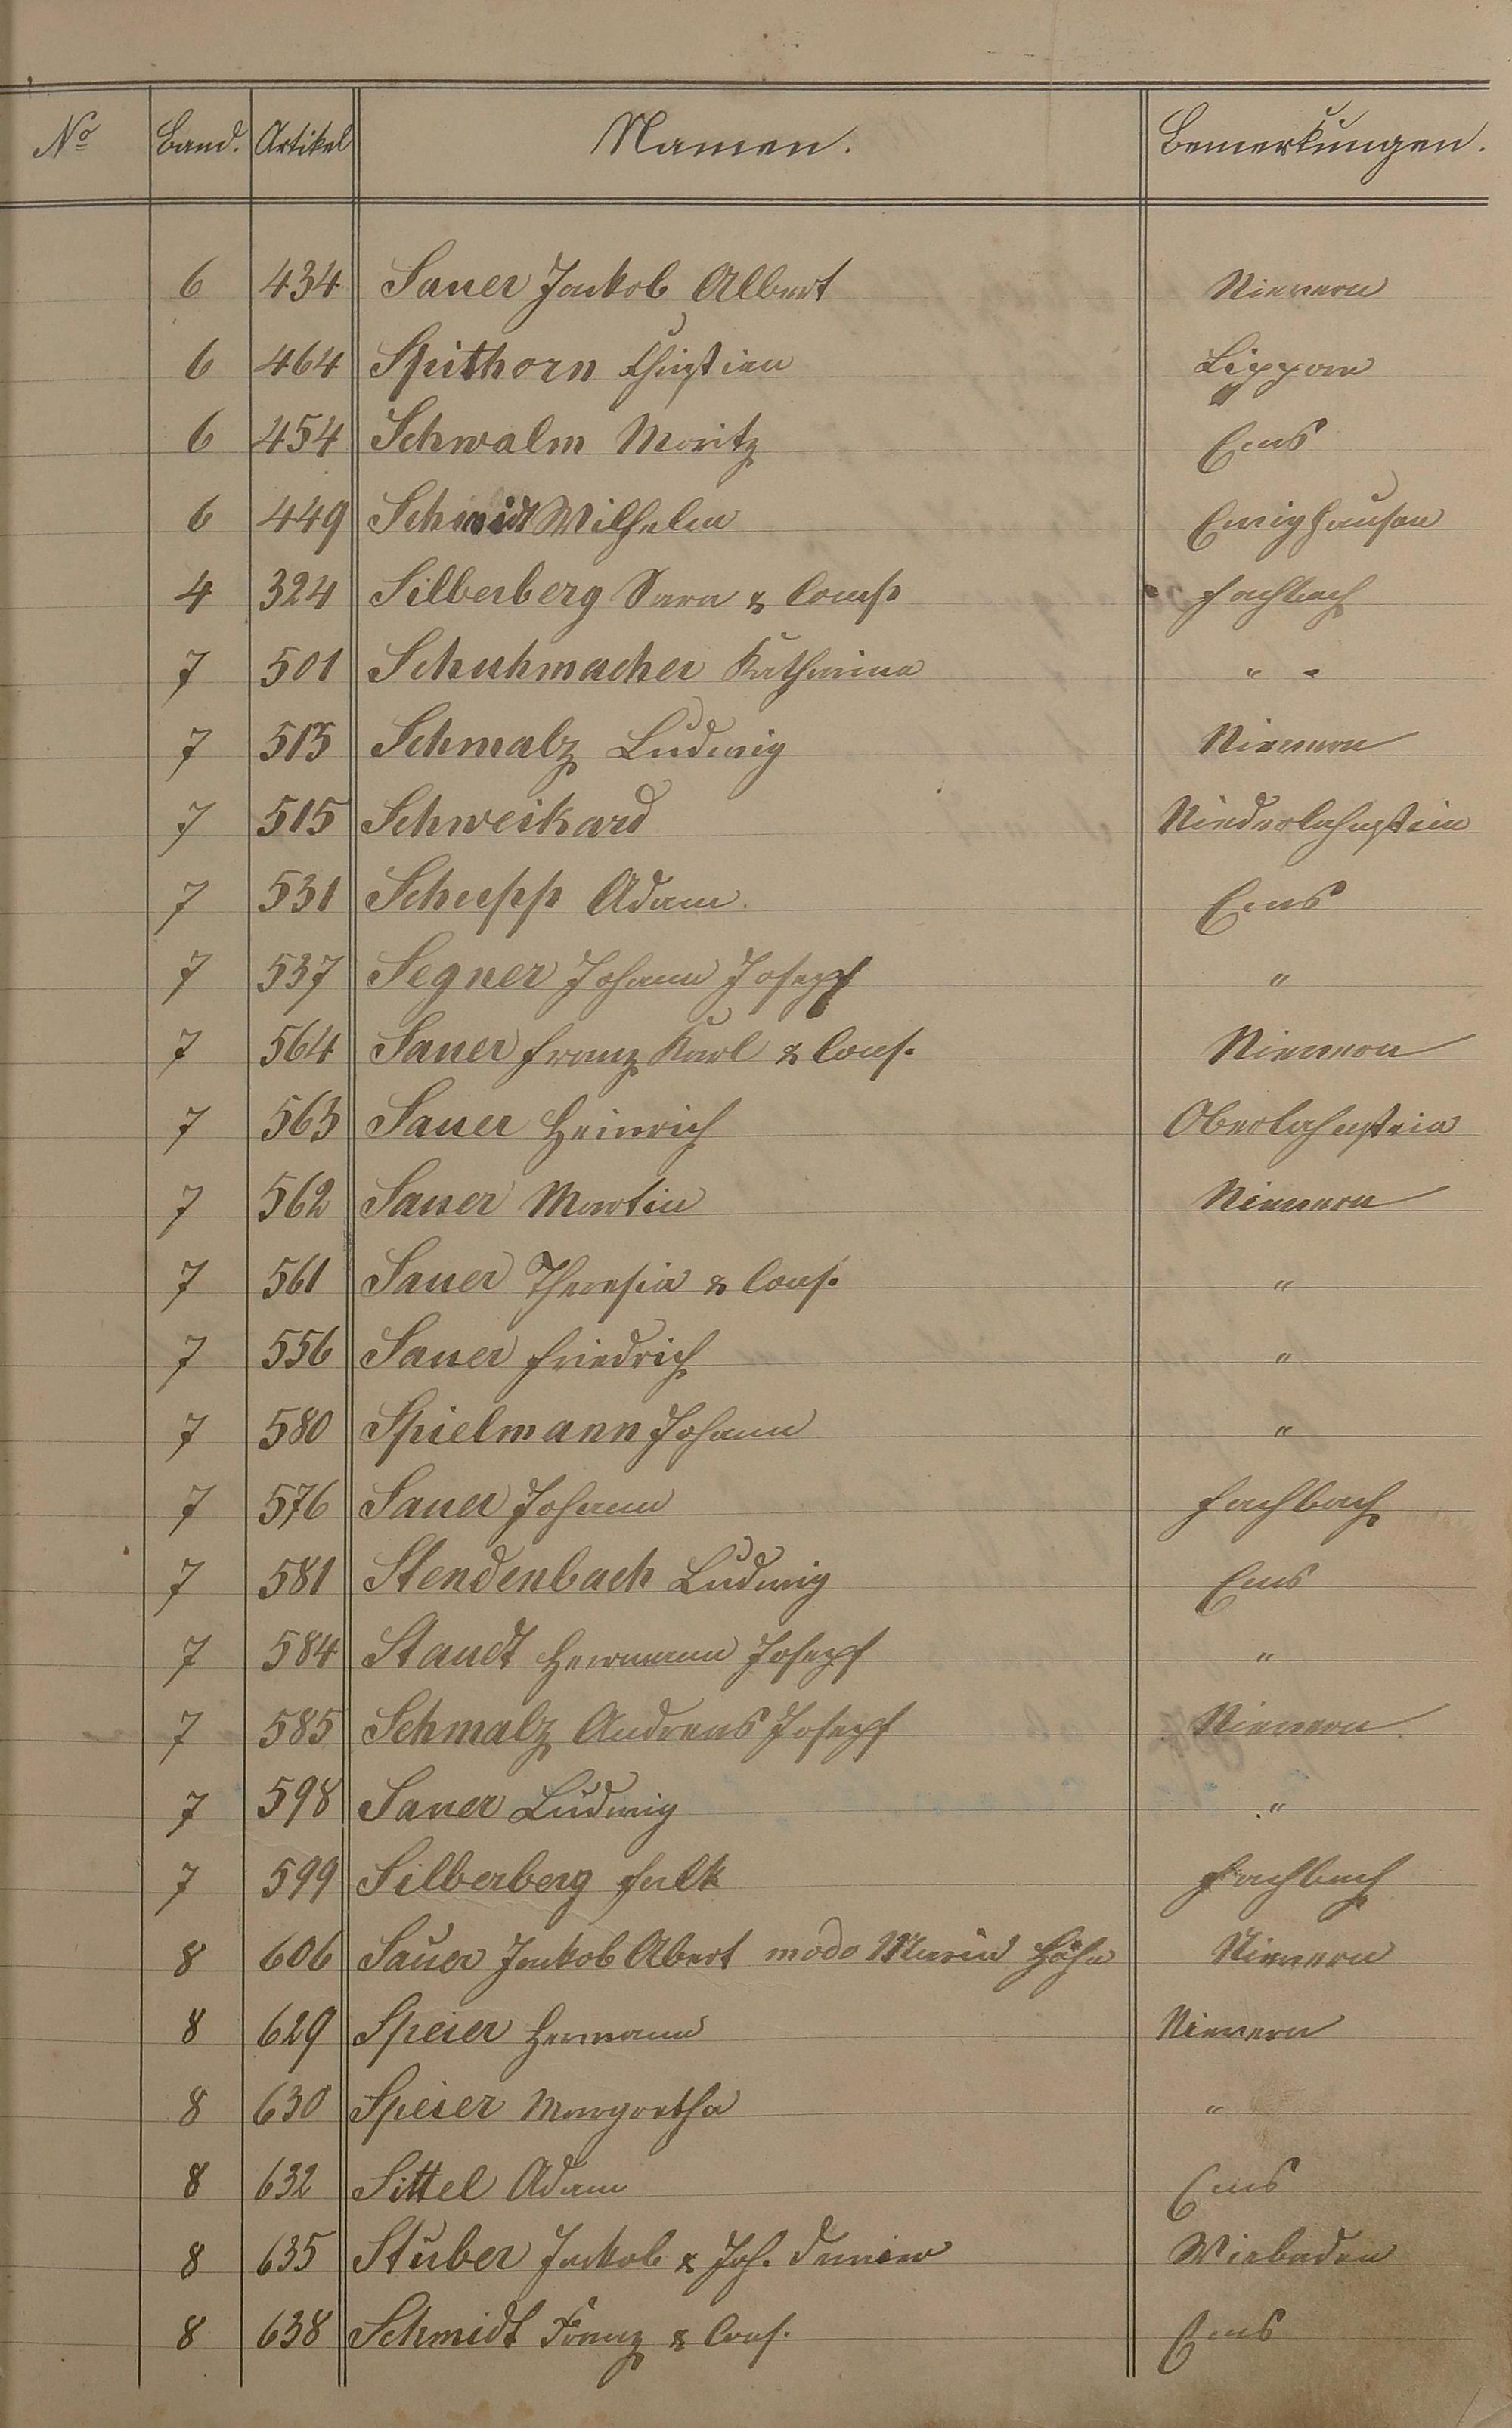 No Band. Artikel Namen. Bemerkungen.
6 434 Sauer Jakob Albert Nievern
6 464 Spithorn Christian Lipporn
6 454 Schwalm Moritz Ems
6 449 Schmidt Wilhelm Ewighausen
4 324 Silberberg Sara & Cons Fachbach
7 501 Schuhmacher Katharina " "
7 513 Schmalz Ludwig Nievern
7 515 Schweikard Niederlahnstein
7 531 Schupp Adam. Ems
7 537 Segner Johann Joseph "
7 564 Sauer Franz Karl & Cons. Nievern
7 563 Sauer Heinrich Oberlahnstein
7 562 Sauer Martin Nievern
7 561 Sauer Theresia & Cons. "
7 556 Sauer Friedrich "
7 580 Spielmann Johann "
7 576 Sauer Johann Fachbach
7 581 Stendenbach Ludwig Ems
7 584 Staudt Hermann Joseph "
7 585 Schmalz Andreas Joseph Nievern
7 598 Sauer Ludwig "
7 599 Silberberg Falk Fachbach
8 606 Sauer Jakob Abert modo Maria Höhn Nievern
8 629 Speier Hermann Nievern
8 630 Speier Margretha "
8 632 Sittel Adam Ems
8 635 Stuber Jakob & Joh. Wiebaden
8 638 Schmidt Franz & Cons. Ems